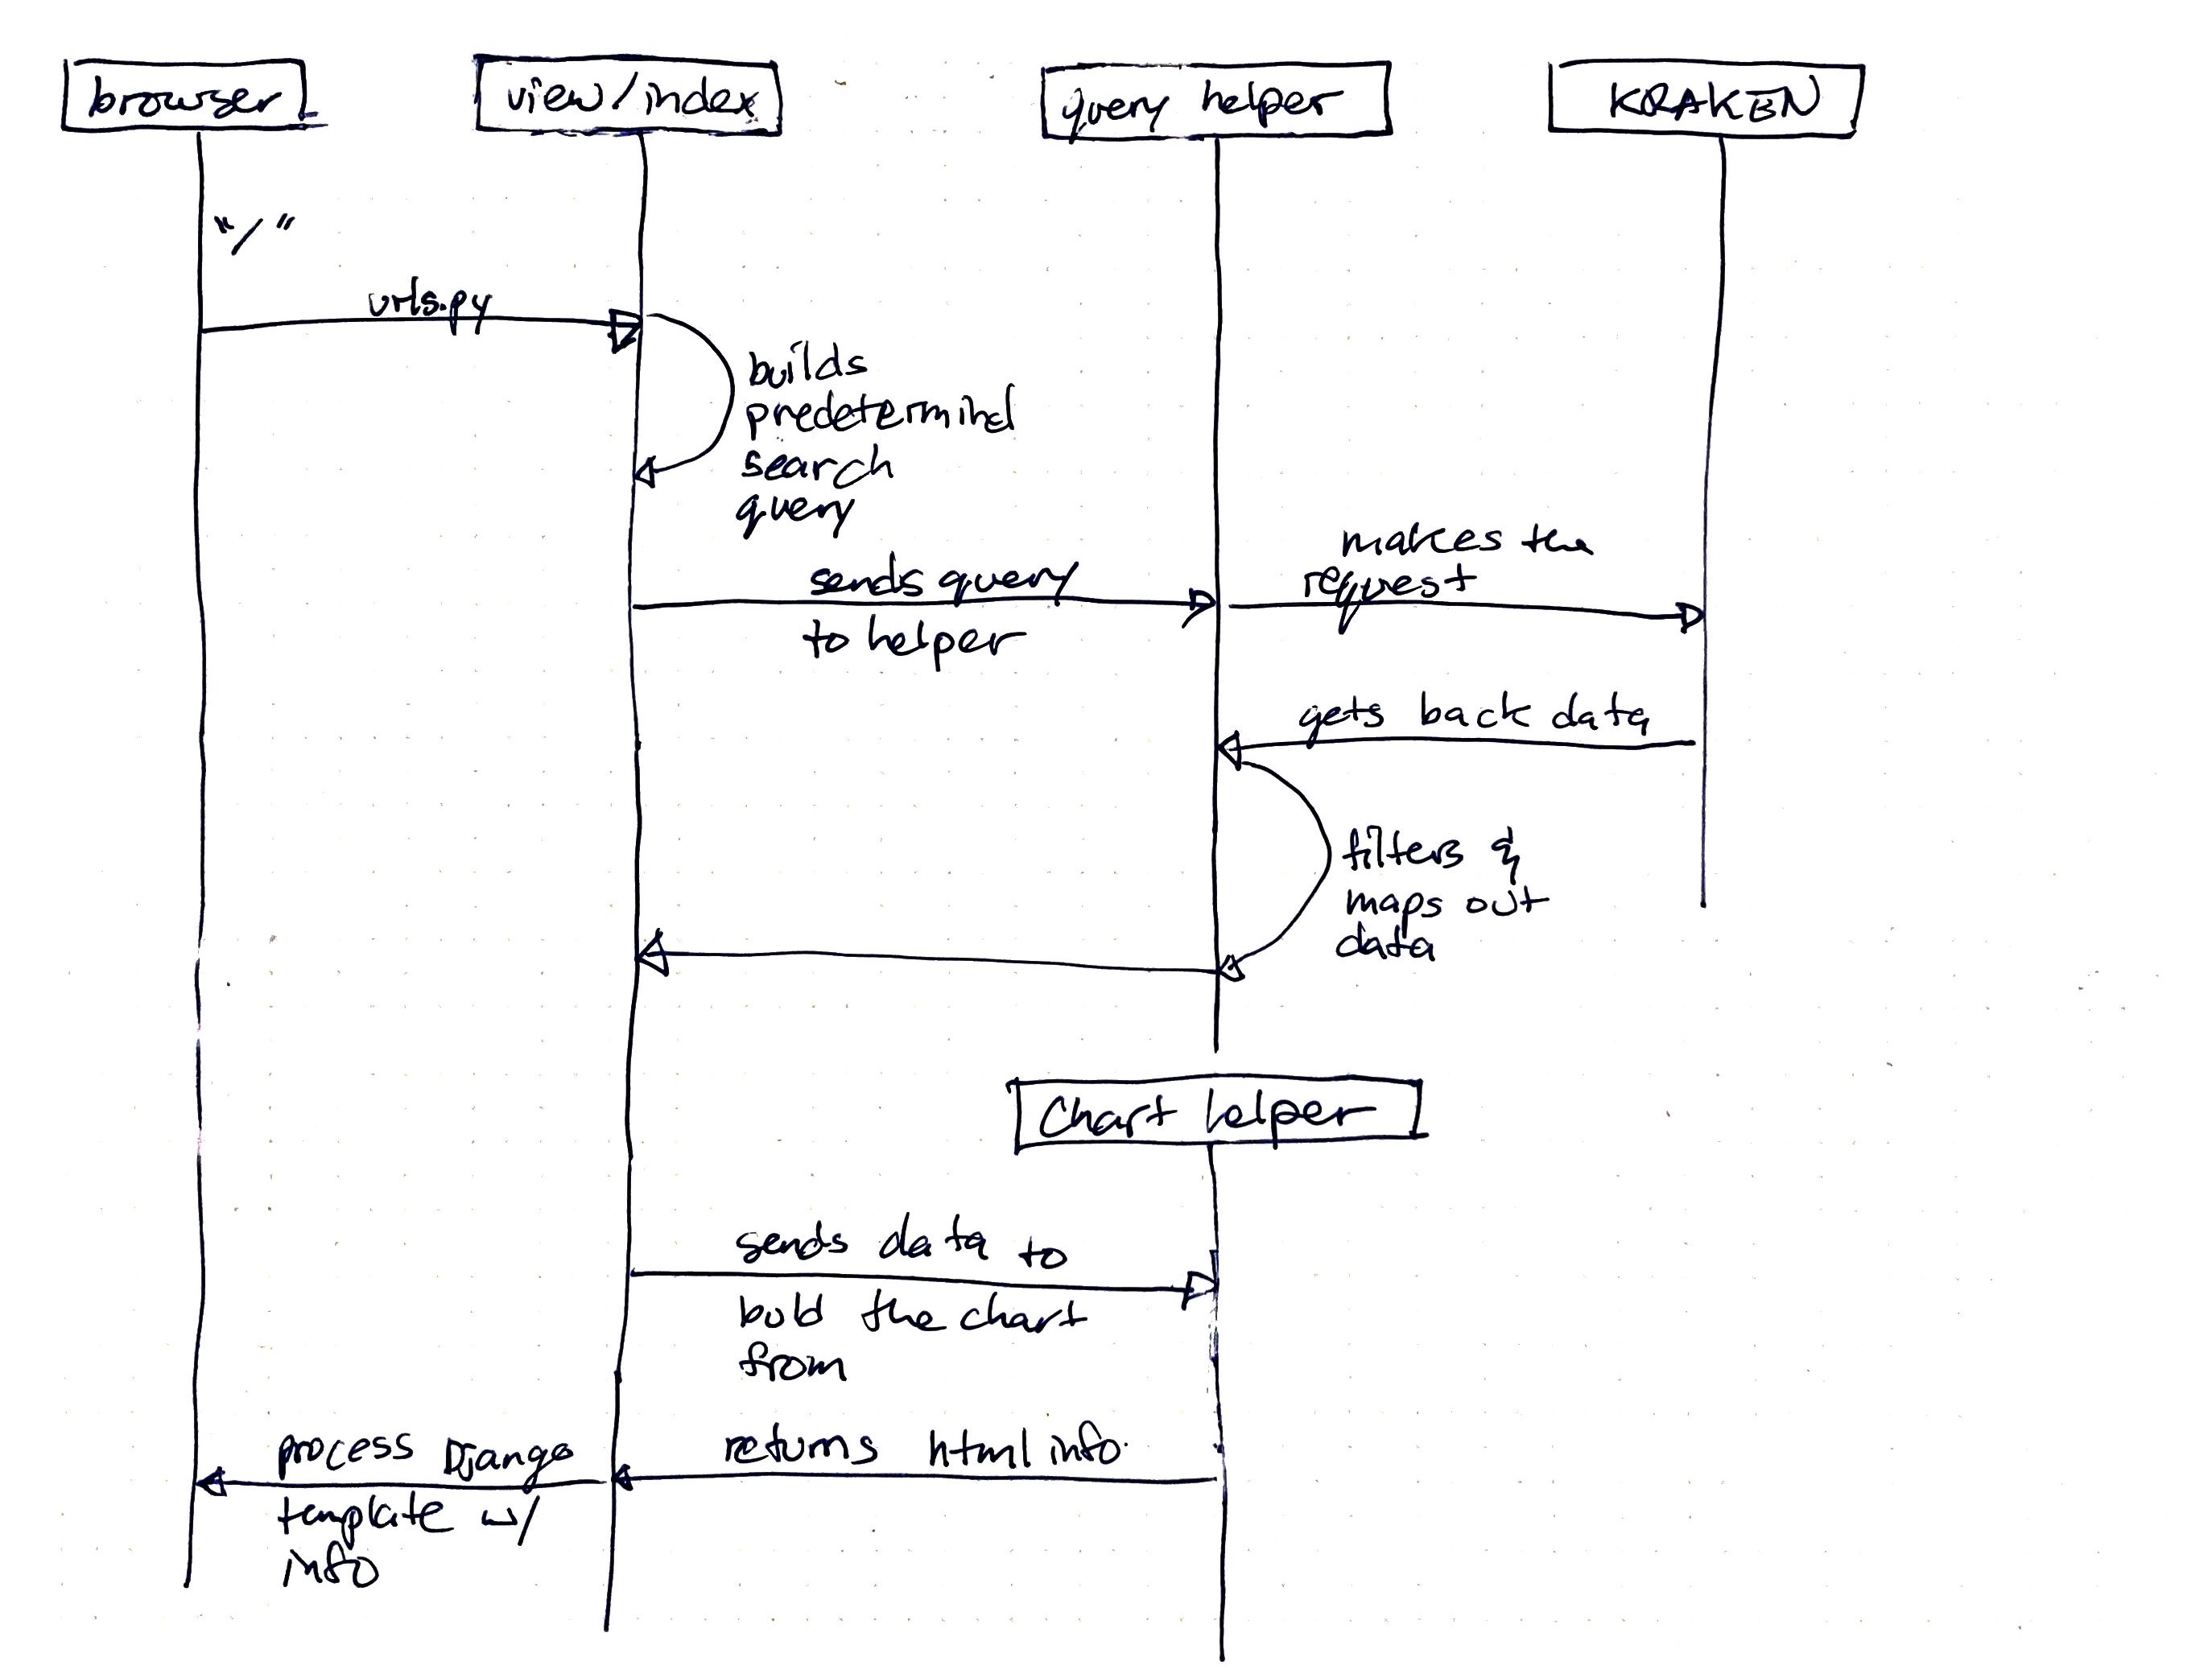 browser
view/index
query helper
KRAKEN
"/"
urls.py
builds
predetermind
search
query
sends query
to helper
makes the
request
gets back data
filters &
maps out
data
Chart helper
sends data to
build the chart
from
returns html info.
process Django
template w/
info